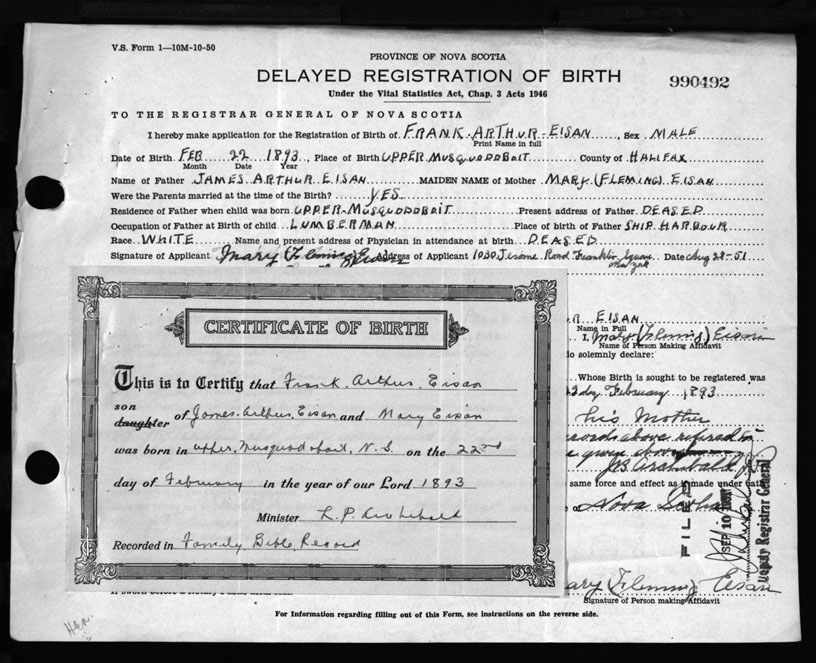 V.S. Form 1—10M-10-50
PROVINCE OF NOVA SCOTIA
DELAYED REGISTRATION OF BIRTH
990492
Under the Vital Statistics Act, Chap. 3 Acts 1946
TO THE REGISTRAR GENERAL OF NOVA SCOTIA
I hereby make application for the Registration of Birth of FRANK-ARTHUR-EISAN, Sex MALE
Print Name in full
Date of Birth FEB 22 1893, Place of Birth UPPER MUSQUODOBOIT County of HALIFAX
Month Date Year
Name of Father JAMES ARTHUR EISAN MAIDEN NAME of Mother MARY (FLEMING) EISAN
Were the Parents married at the time of the Birth? YES
Residence of Father when child was born UPPER-MUSQUODOBOIT Present address of Father DEASED
Occupation of Father at Birth of child LUMBERMAN Place of birth of Father SHIP HARBOUR
Race WHITE Name and present address of Physician in attendance at birth DEASED
Signature of Applicant Mary (Fleming) Eisan Address of Applicant 1030 Road Franklin Square Date Aug 28-51
EISAN
Name in Full
I, Mary (Fleming) Eisan
Name of Person Making Affidavit
do solemnly declare:
Whose Birth is sought to be registered was
day February 1893
his Mother
records above refered to
given above
J.B. Archibald J.P.
same force and effect as if made under oath
of Nova Scotia
FILED
SEP 10 1951
Deputy Registrar General
Mary (Fleming) Eisan
Signature of Person making Affidavit
CERTIFICATE OF BIRTH
This is to Certify that Frank Arthur Eisan
son
daughter of James Arthur Eisan and Mary Eisan
was born in upper Musquodoboit, N.S. on the 22nd
day of February in the year of our Lord 1893
Minister L.P. Archibald
Recorded in Family Bible Record
For Information regarding filling out of this Form, see instructions on the reverse side.